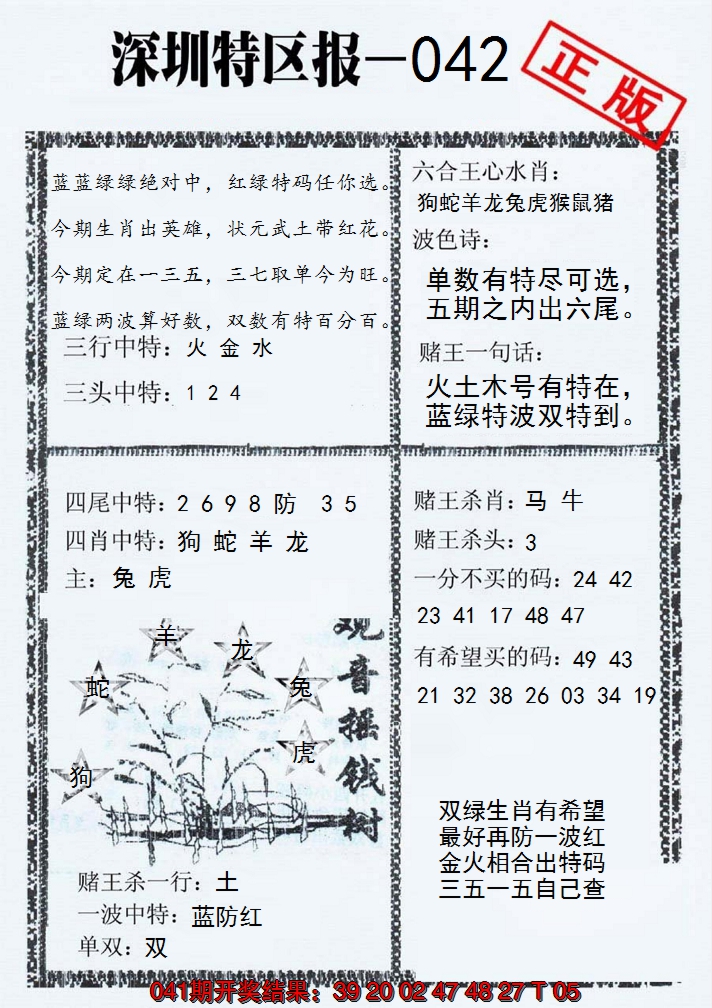 深圳特区报—042
正版
蓝蓝绿绿绝对中，红绿特码任你选。
今期生肖出英雄，状元武土带红花。
今期定在一三五，三七取单今为旺。
蓝绿两波算好数，双数有特百分百。
三行中特：火 金 水
三头中特：1 2 4
六合王心水肖：
狗蛇羊龙兔虎猴鼠猪
波色诗：
单数有特尽可选，
五期之内出六尾。
赌王一句话：
火土木号有特在，
蓝绿特波双特到。
四尾中特：2 6 9 8 防 3 5
四肖中特：狗 蛇 羊 龙
主：兔 虎
羊
龙
蛇
兔
虎
狗
观音摇钱树
赌王杀一行：土
一波中特：蓝防红
单双：双
赌王杀肖：马 牛
赌王杀头：3
一分不买的码：24 42
23 41 17 48 47
有希望买的码：49 43
21 32 38 26 03 34 19
双绿生肖有希望
最好再防一波红
金火相合出特码
三五一五自己查
041期开奖结果：39 20 02 47 48 27 T 05